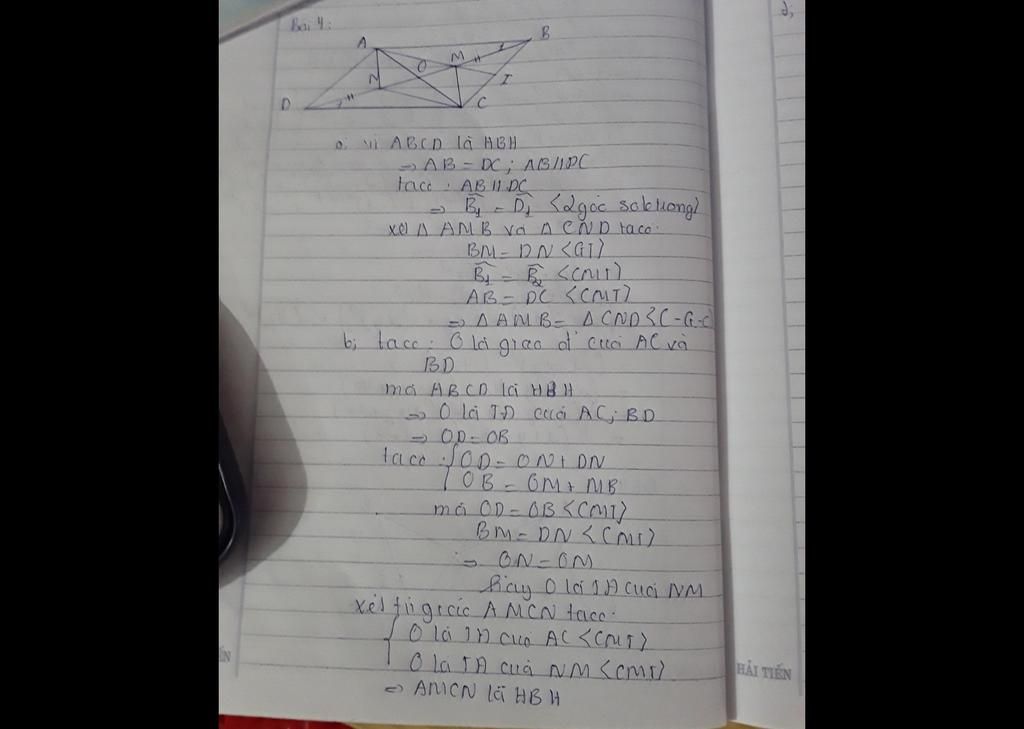 Bài 4:
A
B
O
M
N
I
D
C
a; vì ABCD là HBH
=> AB = DC ; AB // DC
tacó : AB // DC
=> B̂₁ = D̂₁ <2 góc so le trong>
xét Δ AMB và Δ CND tacó:
BM = DN <GT>
B̂₁ = B̂₂ <CMT>
AB = DC <CMT>
=> Δ AMB = Δ CND <C-G-C
b; tacó : O là giao đ' của AC và
BD
mà ABCD là HBH
=> O là TĐ của AC; BD
=> OD = OB
tacó : { OD = ON + DN
OB = OM + MB
mà OD = OB <CMT>
BM = DN <CMT>
=> ON = OM
hay O là TĐ của NM
xét tứ giác AMCN tacó:
{ O là TĐ của AC <CMT>
O là TĐ của NM <CMT>
=> AMCN là HBH
HẢI TIẾN
2,